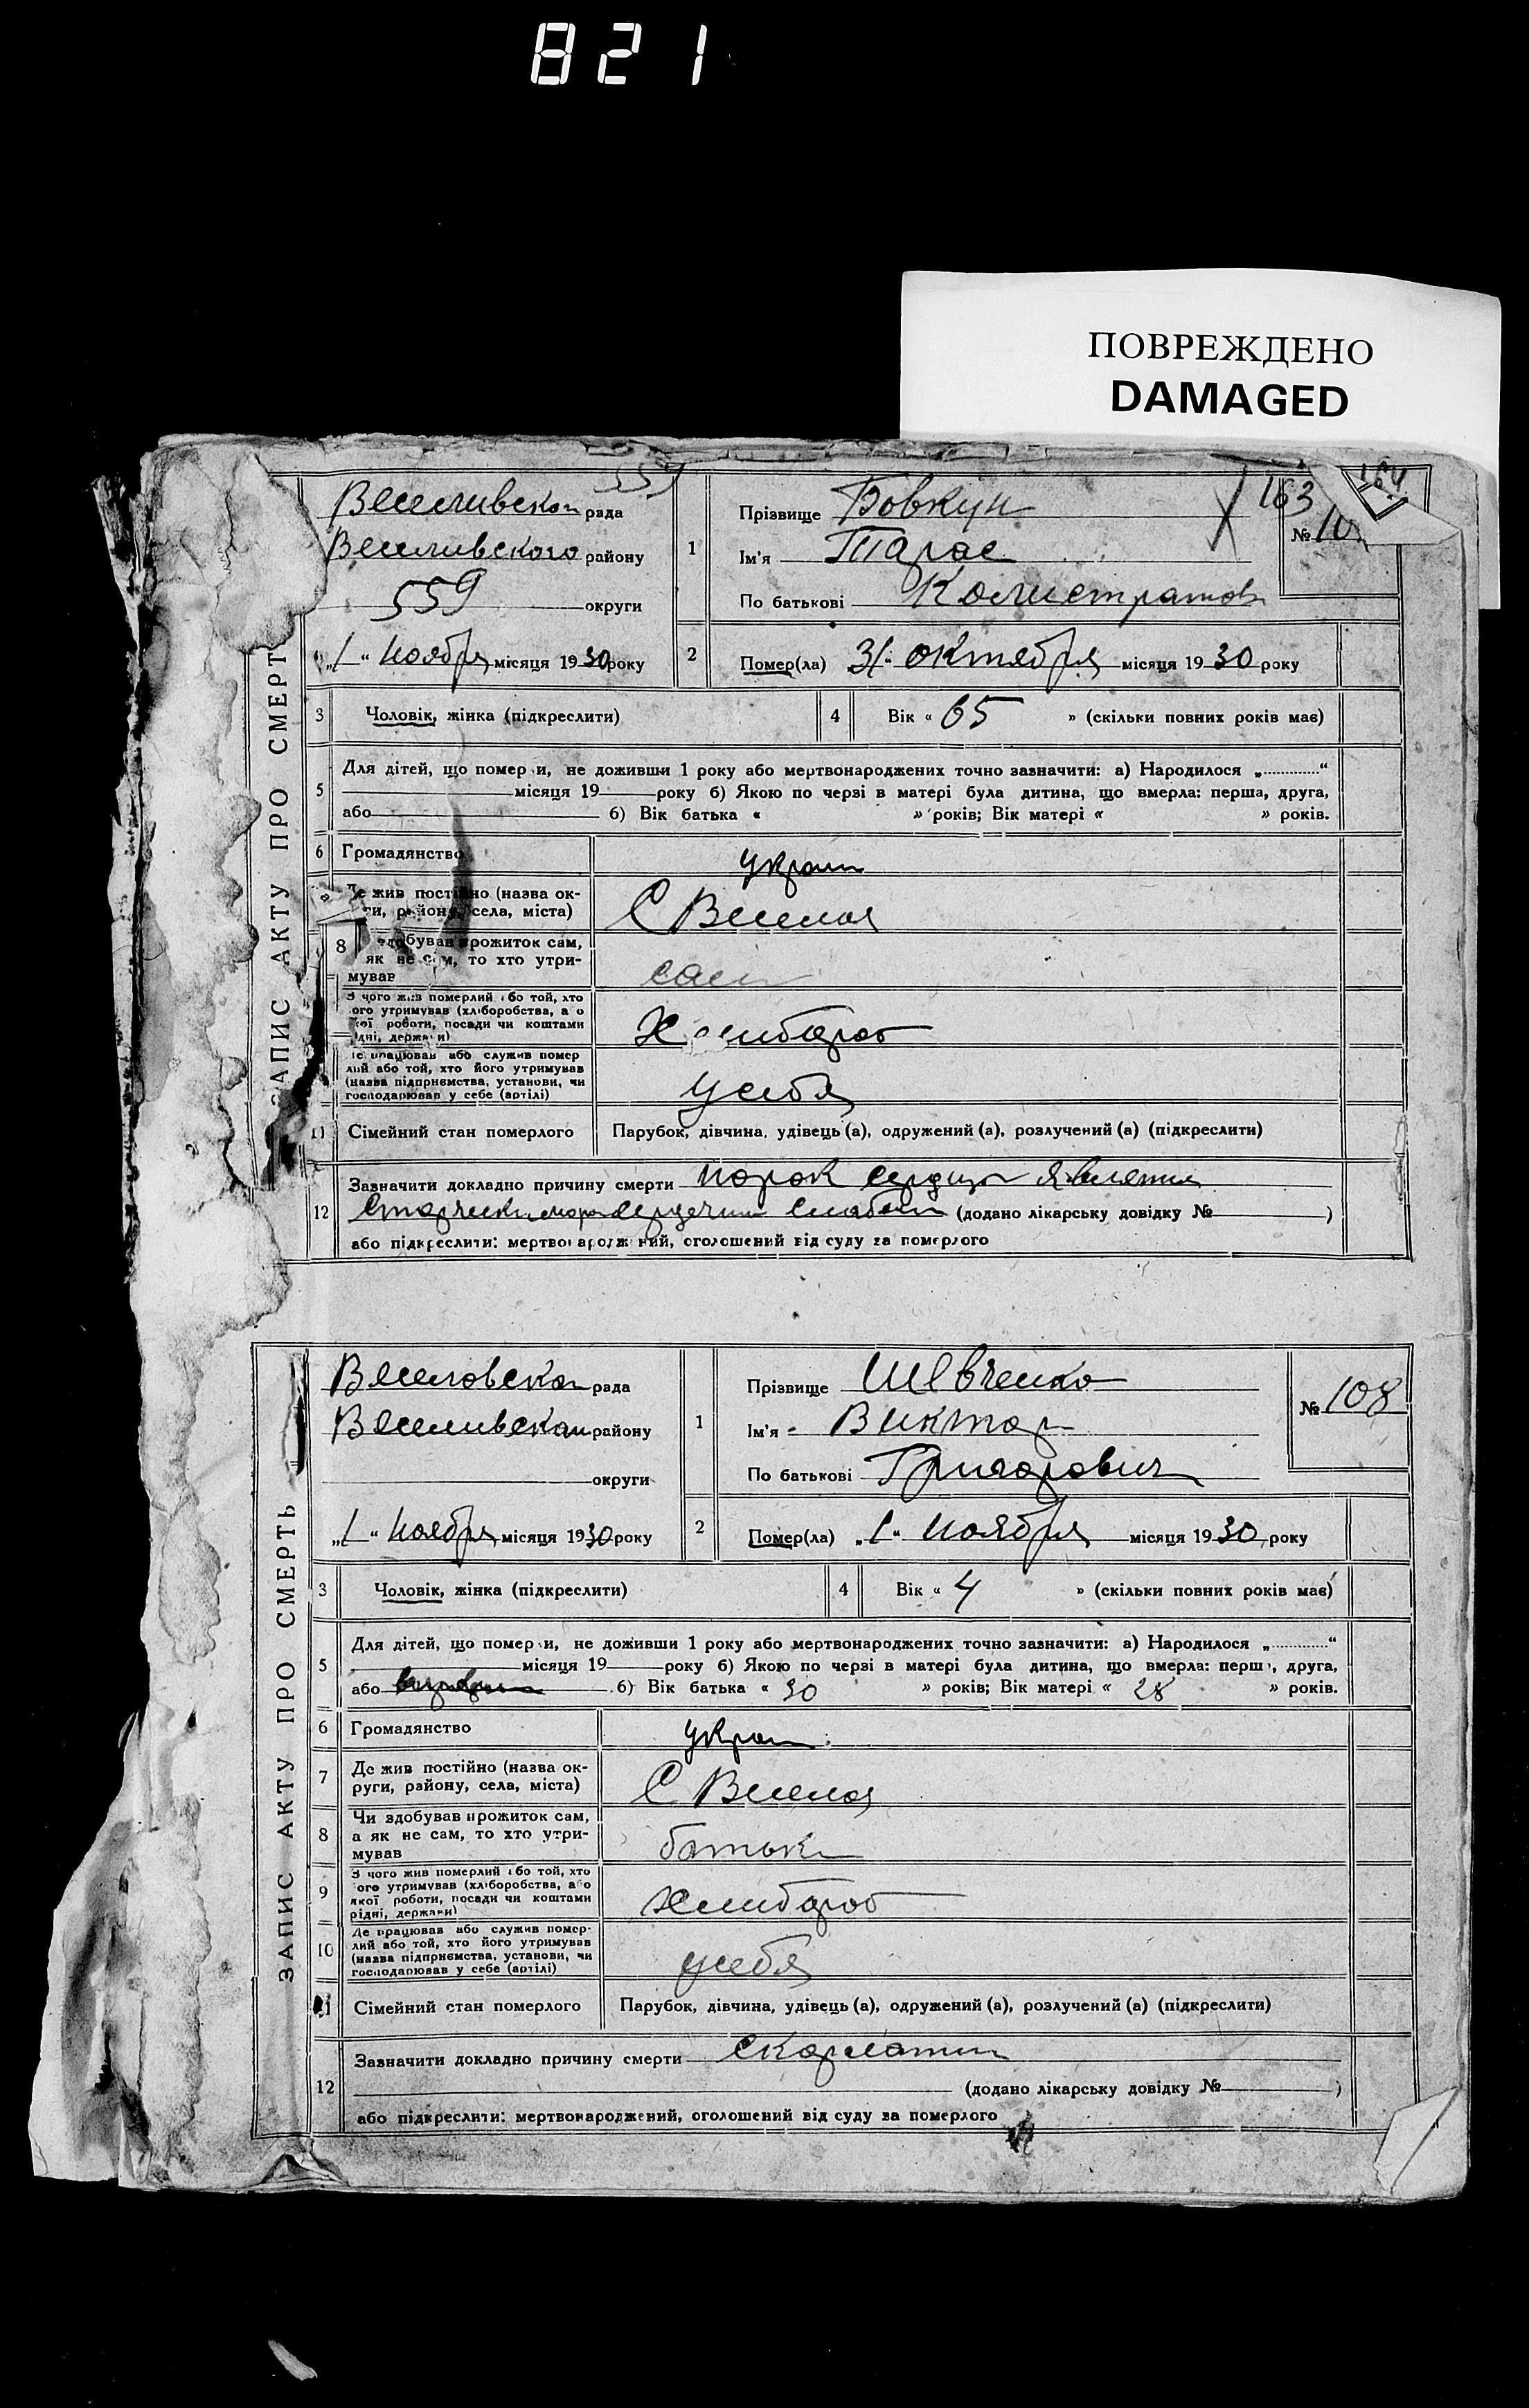 821
ПОВРЕЖДЕНО
DAMAGED
ЗАПИС АКТУ ПРО СМЕРТЬ
559
Веселивская рада
Веселивского району
559 округи
„1“ ноября місяця 1930 року
1
Прізвище Бовкун
Ім'я Тарас
По батькові Колистратов
163
164
№ 10
2 Помер(ла) 31“ октября місяця 1930 року
3 Чоловік, жінка (підкреслити)
4 Вік « 65 » (скільки повних років має)
5 Для дітей, що помер и, не доживши 1 року або мертвонароджених точно зазначити: а) Народилося „ “
місяця 19 року б) Якою по черзі в матері була дитина, що вмерла: перша, друга,
або б) Вік батька « » років; Вік матері « » років.
6 Громадянство украин
Де жив постійно (назва ок-
ги, району, села, міста) С Веселое
8 здобував прожиток сам,
як не сам, то хто утри-
мував сам
З чого жив померлий або той, хто
ого утримував (хліборобства, а о
кої роботи, посади чи коштами
рідні, держави) Хлибороб
Де працював або служив помер
лий або той, хто його утримував
(назва підприємства, установи, чи
господарював у себе (артілі) у себя
11 Сімейний стан померлого Парубок, дівчина, удівець (а), одружений (а), розлучений (а) (підкреслити)
12 Зазначити докладно причину смерти порок сердца
(додано лікарську довідку № )
або підкреслити: мертвонароджений, оголошений від суду за померлого
ЗАПИС АКТУ ПРО СМЕРТЬ
Веселовская рада
Веселивскаи району
округи
„1“ ноября місяця 1930 року
1
Прізвище Шевченко
Ім'я Виктор
По батькові Григорович
№ 108
2 Помер(ла) „1“ ноября місяця 1930 року
3 Чоловік, жінка (підкреслити)
4 Вік « 4 » (скільки повних років має)
5 Для дітей, що помер и, не доживши 1 року або мертвонароджених точно зазначити: а) Народилося „ “
місяця 19 року б) Якою по черзі в матері була дитина, що вмерла: перш , друга,
або б) Вік батька « 30 » років; Вік матері « 28 » років.
6 Громадянство украин
7 Де жив постійно (назва ок-
руги, району, села, міста) С Веселое
8 Чи здобував прожиток сам,
а як не сам, то хто утри-
мував батьки
9 З чого жив померлий або той, хто
ого утримував (хліборобства, або
якої роботи, посади чи коштами
рідні, держави) хлибороб
10 Де працював або служив помер-
лий або той, хто його утримував
(назва підприємства, установи, чи
господарював у себе (артілі) у себя
11 Сімейний стан померлого Парубок, дівчина, удівець (а), одружений (а), розлучений (а) (підкреслити)
12 Зазначити докладно причину смерти скарлатин
(додано лікарську довідку № )
або підкреслити: мертвонароджений, оголошений від суду за померлого